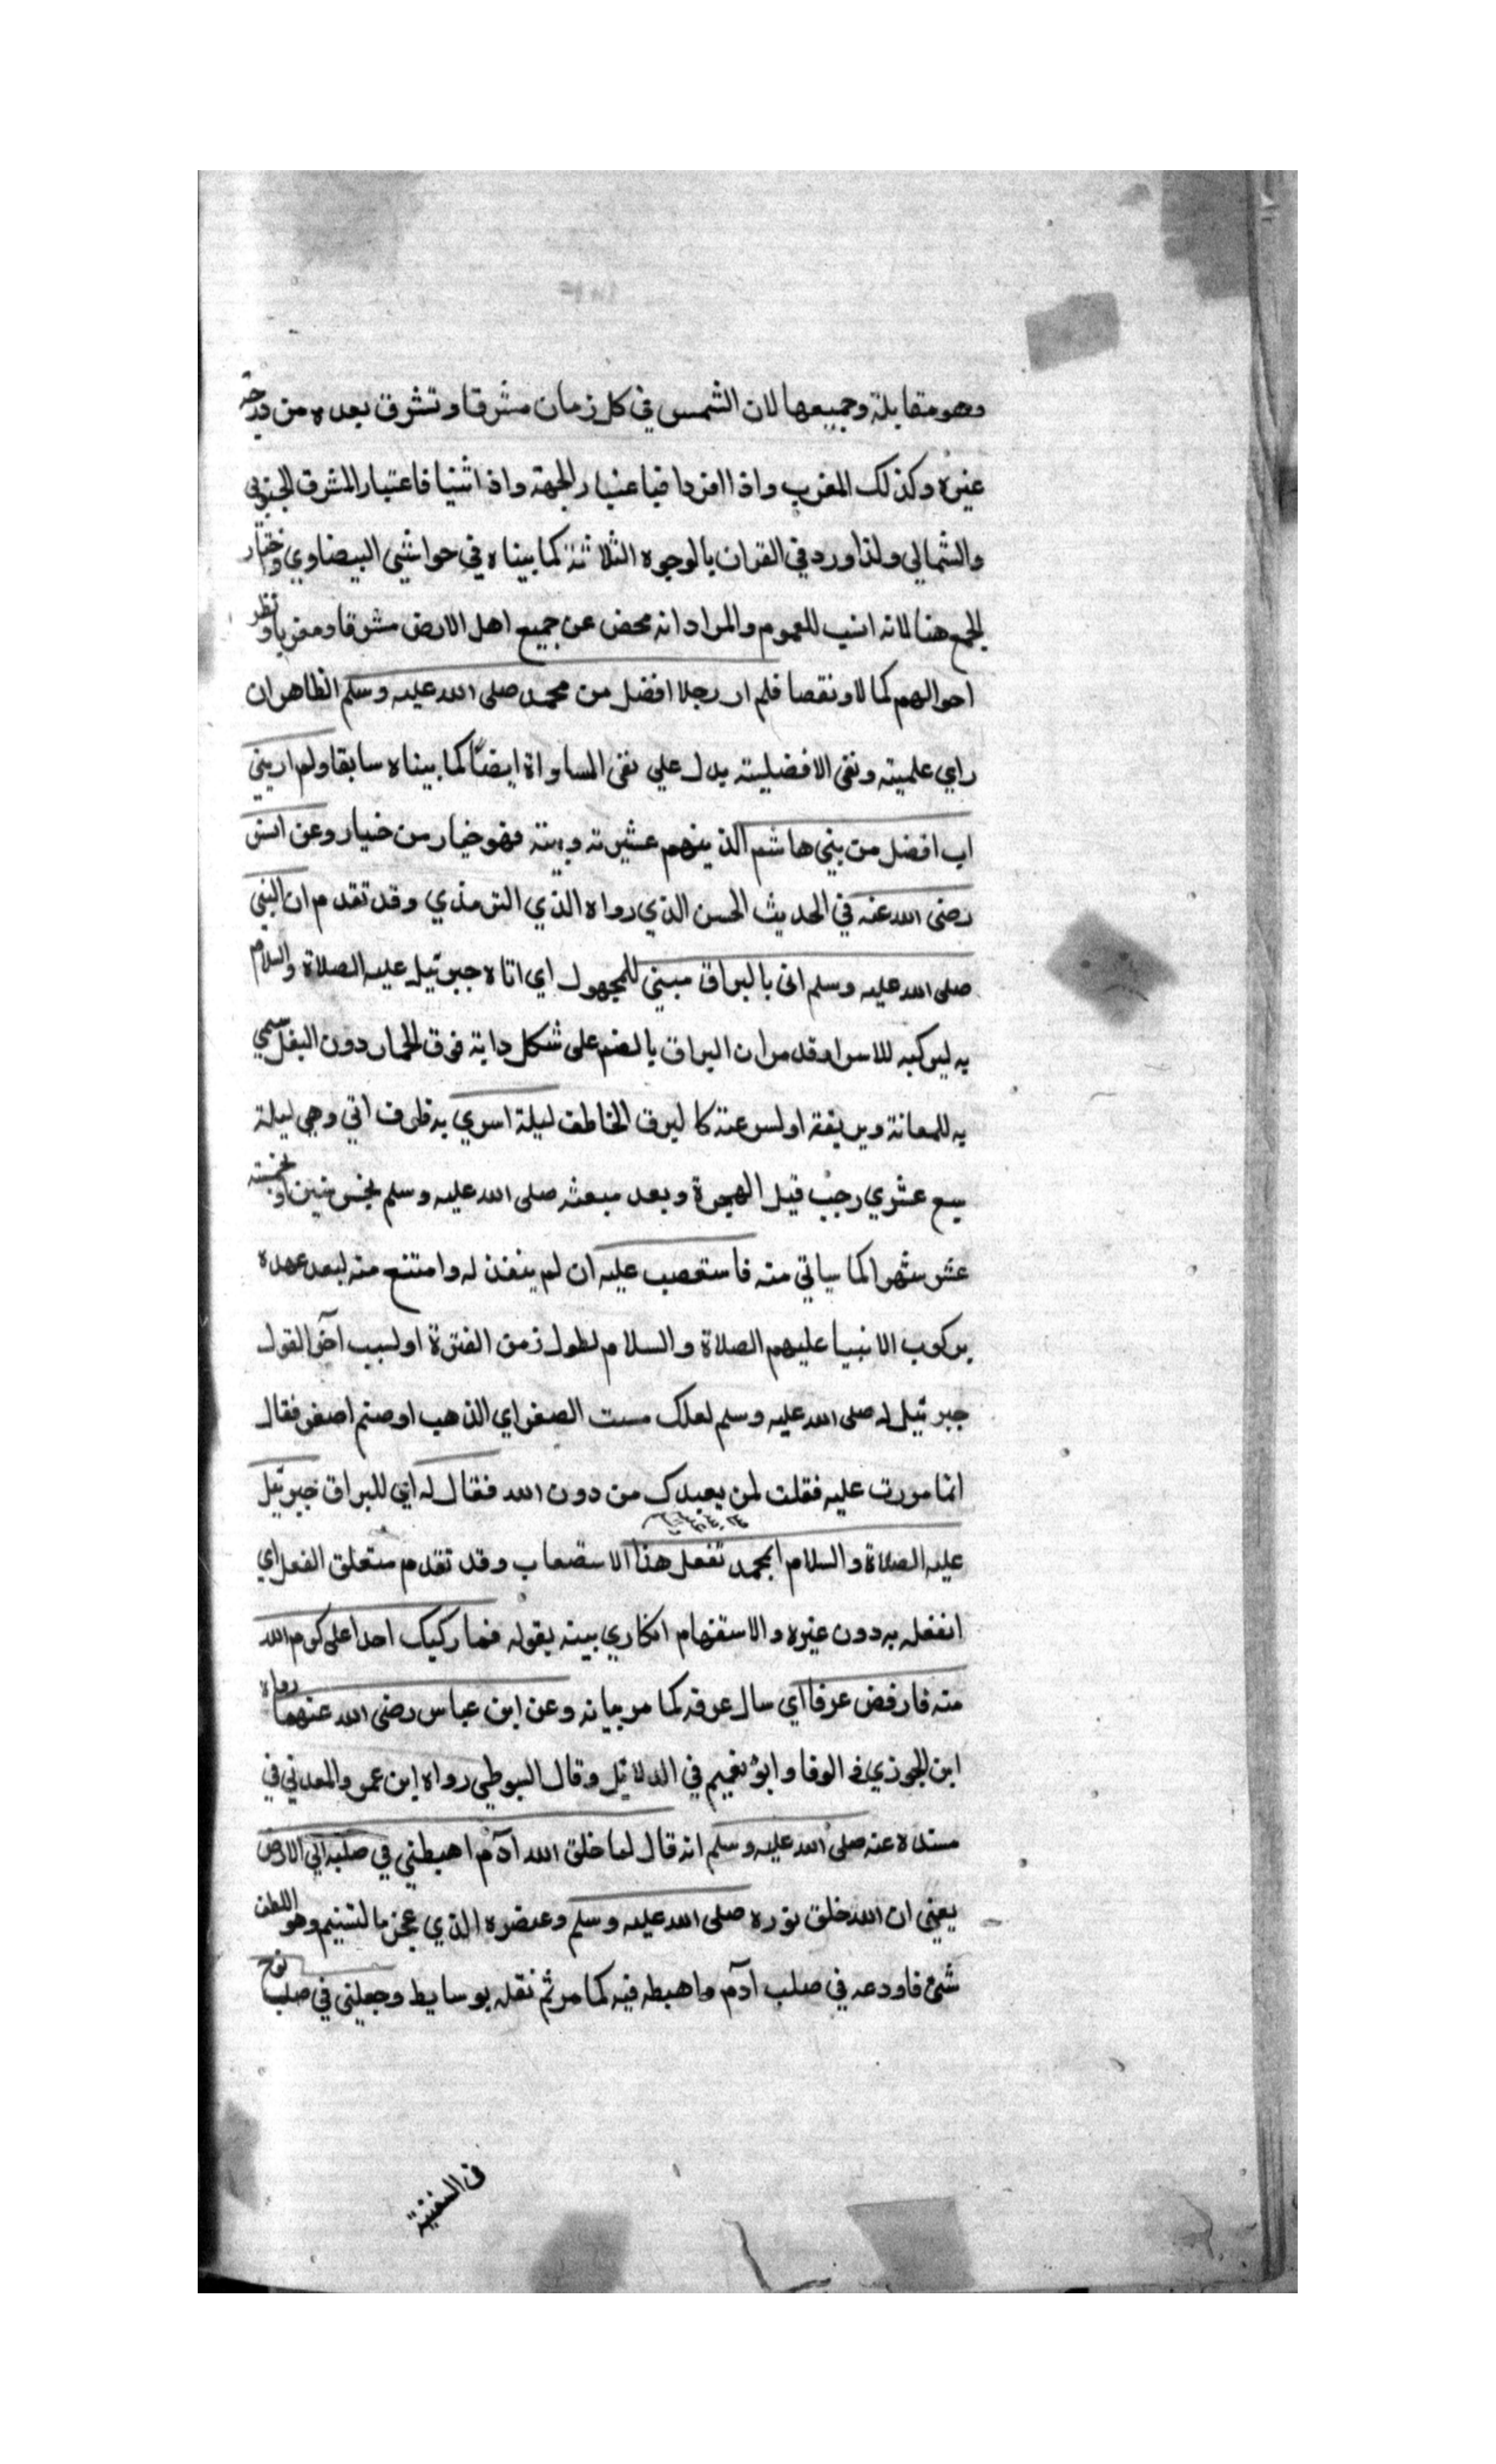 وهو مقابلة وجميعها لان الشمس في كل زمان مشرقا وتشرق بعده من درجه
غيره وكذلك المغرب واذا افردا فباعتبار الجهة واذا ثنيا فاعتبار المشرق الجنوبي
والشمالي ولذا ورد في القران بالوجوه الثلاثة كما بيناه في حواشي البيضاوي واختيار
الجمع هنا لانه انسب للعموم والمراد انه محض عن جميع اهل الارض مشرقا ومغربا ونظر
احوالهم كمالا ونقصا فلم ار رجلا افضل من محمد صلى الله عليه وسلم الظاهر ان
راي علمية ونفى الافضلية يدل علي نفى المساواة ايضا كما بيناه سابقا ولم ار بني
اب افضل من بني هاشم الذينهم عشيرته وبيته فهو خيار من خيار وعن انس
رضى الله عنه في الحديث الحسن الذي رواه الذي الترمذي وقد تقدم ان النبي
صلى الله عليه وسلم اتى بالبراق مبني للمجهول اي اتاه جبرئيل عليه الصلاة والسلام
به ليركبه للاسرا وقد مر ان البراق بالضم على شكل دابة فوق الحمار دون البغل سمي
به للمعانة وبريقة او لسرعته كالبرق الخاطف ليلة اسري به ظرف اتي وهي ليلة
سبع عشري رجب قبل الهجرة وبعد مبعثه صلى الله عليه وسلم بخمس سنين او بخمسة
عشر شهرا كما سياتي منه فاستصعب عليه ان لم ينفذ له وامتنع منه لبعد عهده
بركوب الانبيا عليهم الصلاة والسلام لطول زمن الفترة او لسبب اخر القول
جبرئيل له صلى الله عليه وسلم لعلك مست الصفراي الذهب او صنم اصفر فقال
انما مررت عليه فقلت لمن يعبدك من دون الله فقال له اي للبراق جبرئيل
عليه الصلاة والسلام ابمحمد تفعل هذا الاستصعاب وقد تقدم متعلق الفعل اي
اتفعله به دون غيره والاستفهام انكاري بينه بقوله فما ركبك احد اعلى كرم الله
منه فارفض عرفا اي سال عرقه كما مر بيانه وعن ابن عباس رضى الله عنهما رواه
ابن الجوزي في الوفا وابو نعيم في الدلائل وقال السيوطي رواه ابن عمر والمعدني في
مسنده عنه صلى الله عليه وسلم انه قال لما خلق الله ادم اهبطني في صلبه الي الارض
يعني ان الله خلق نوره صلى الله عليه وسلم وعنصره الذي عجن بالتسنيم وهو الطف
شئ فاودعه في صلب آدم واهبطه فيه كما مر ثم نقله بوسايط وجعلني في صلب نوح
في السفينة